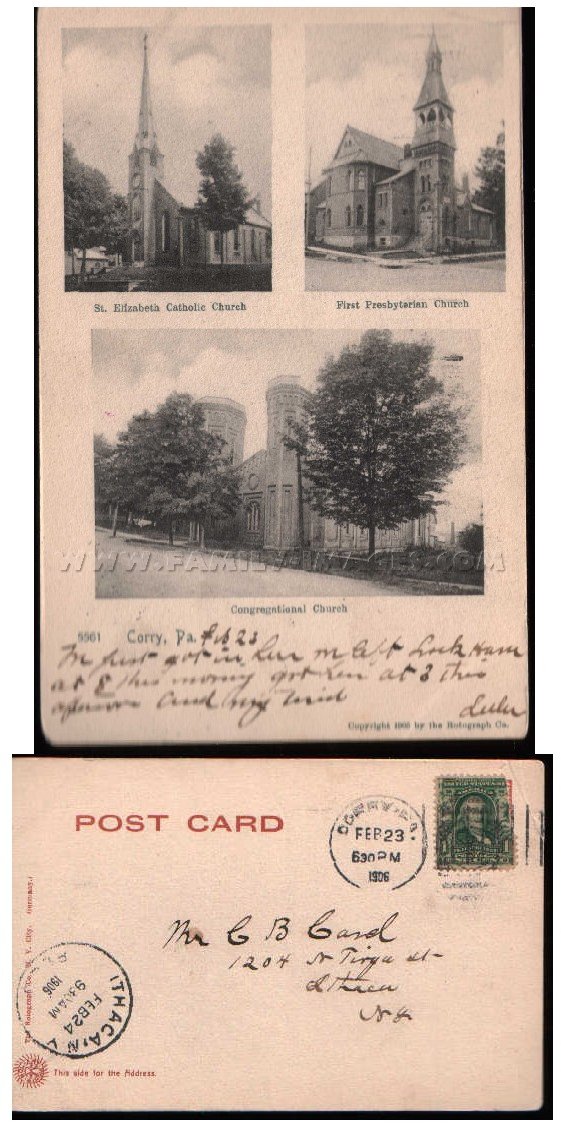 St. Elizabeth Catholic Church
First Presbyterian Church
WWW.FAMILY-IMAGES.COM
Congregational Church
5561 Corry, Pa. Feb 23
I'm just got in here left Lock Haven
at 8 this morning got here at 3 this
and my tired
Lulu
Copyright 1905 by the Rotograph Co.
POST CARD
CORRY, PA.
FEB 23
630 PM
1906
UNITED STATES OF AMERICA
1
Mr C B Card
1204 N Tioga St
Ithaca
N.Y.
The Rotograph Co., N. Y. City. (Germany.)
ITHACA, N.Y.
FEB 24
930 AM
1906
This side for the Address.